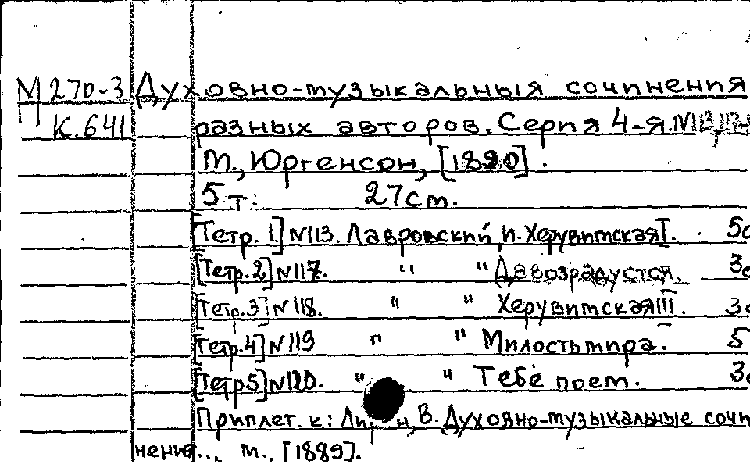 М 270-3 Духовно-музыкальныя сочинения
К.641 разных авторов. Серия 4-я.
М., Юргенсон, [1890].
5 т. 27 см.
[Тетр. 1] №113. Лавровский, Н. Херувимская I. 5с
[Тетр. 2] №117. " " Да возрадуется. 3с
[Тетр. 3] №118. " " Херувимская III. 3с
[Тетр. 4] №119 " " Милость мира. 5
[Тетр 5] №120. " " Тебе поем. 3с
Приплет. к: В. Духовно-музыкальные сочи
нения.., М., [1889].